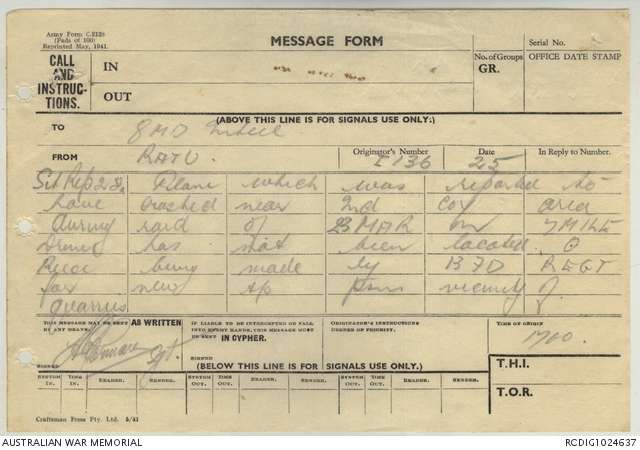 Army Form C.2128
(Pads of 100)
Reprinted May, 1941.
MESSAGE FORM
Serial No.
CALL
AND
INSTRUC-
TIONS.
IN
OUT
No. of Groups
GR.
OFFICE DATE STAMP
(ABOVE THIS LINE IS FOR SIGNALS USE ONLY.)
TO 8 MD
FROM RATU Originator's Number I 136 Date 25 In Reply to Number
Sit Rep 28. Plane which was reported to
have crashed near 2nd area
during raid of 23 MAR on 7 MILE
Drome has not been located
Recce being made by B FD REGT
for new vicinity of
quarries
THIS MESSAGE MAY BE SENT AS WRITTEN
BY ANY MEANS.
Sgt.
SIGNED
IF LIABLE TO BE INTERCEPTED OR FALL
INTO ENEMY HANDS, THIS MESSAGE MUST
BE SENT IN CIPHER.
SIGNED
ORIGINATOR'S INSTRUCTIONS
DEGREE OF PRIORITY.
TIME OF ORIGIN
1700
(BELOW THIS LINE IS FOR SIGNALS USE ONLY.)
T.H.I.
T.O.R.
SYSTEM IN. TIME IN. READER. SENDER. SYSTEM OUT. TIME OUT. READER. SENDER. SYSTEM OUT. TIME OUT. READER. SENDER.
Craftsman Press Pty. Ltd. 5/41
AUSTRALIAN WAR MEMORIAL
RCDIG1024637